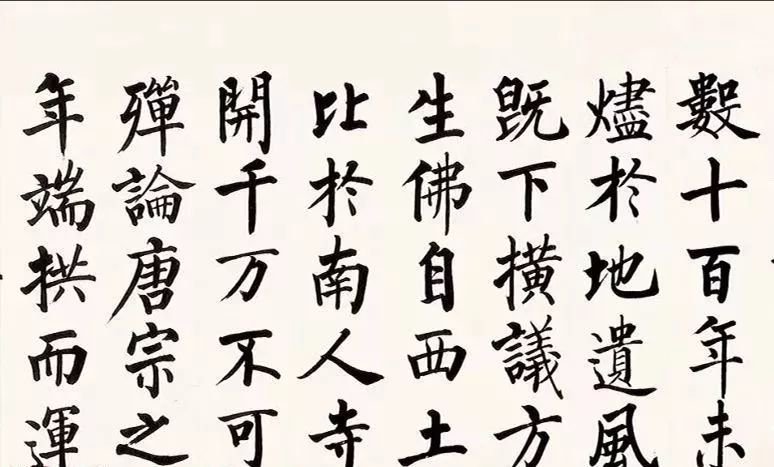 數十百年未
燼於地遺風
既下橫議方
生佛自西土
比於南人寺
開千万不可
殫論唐宗之
年端拱而運